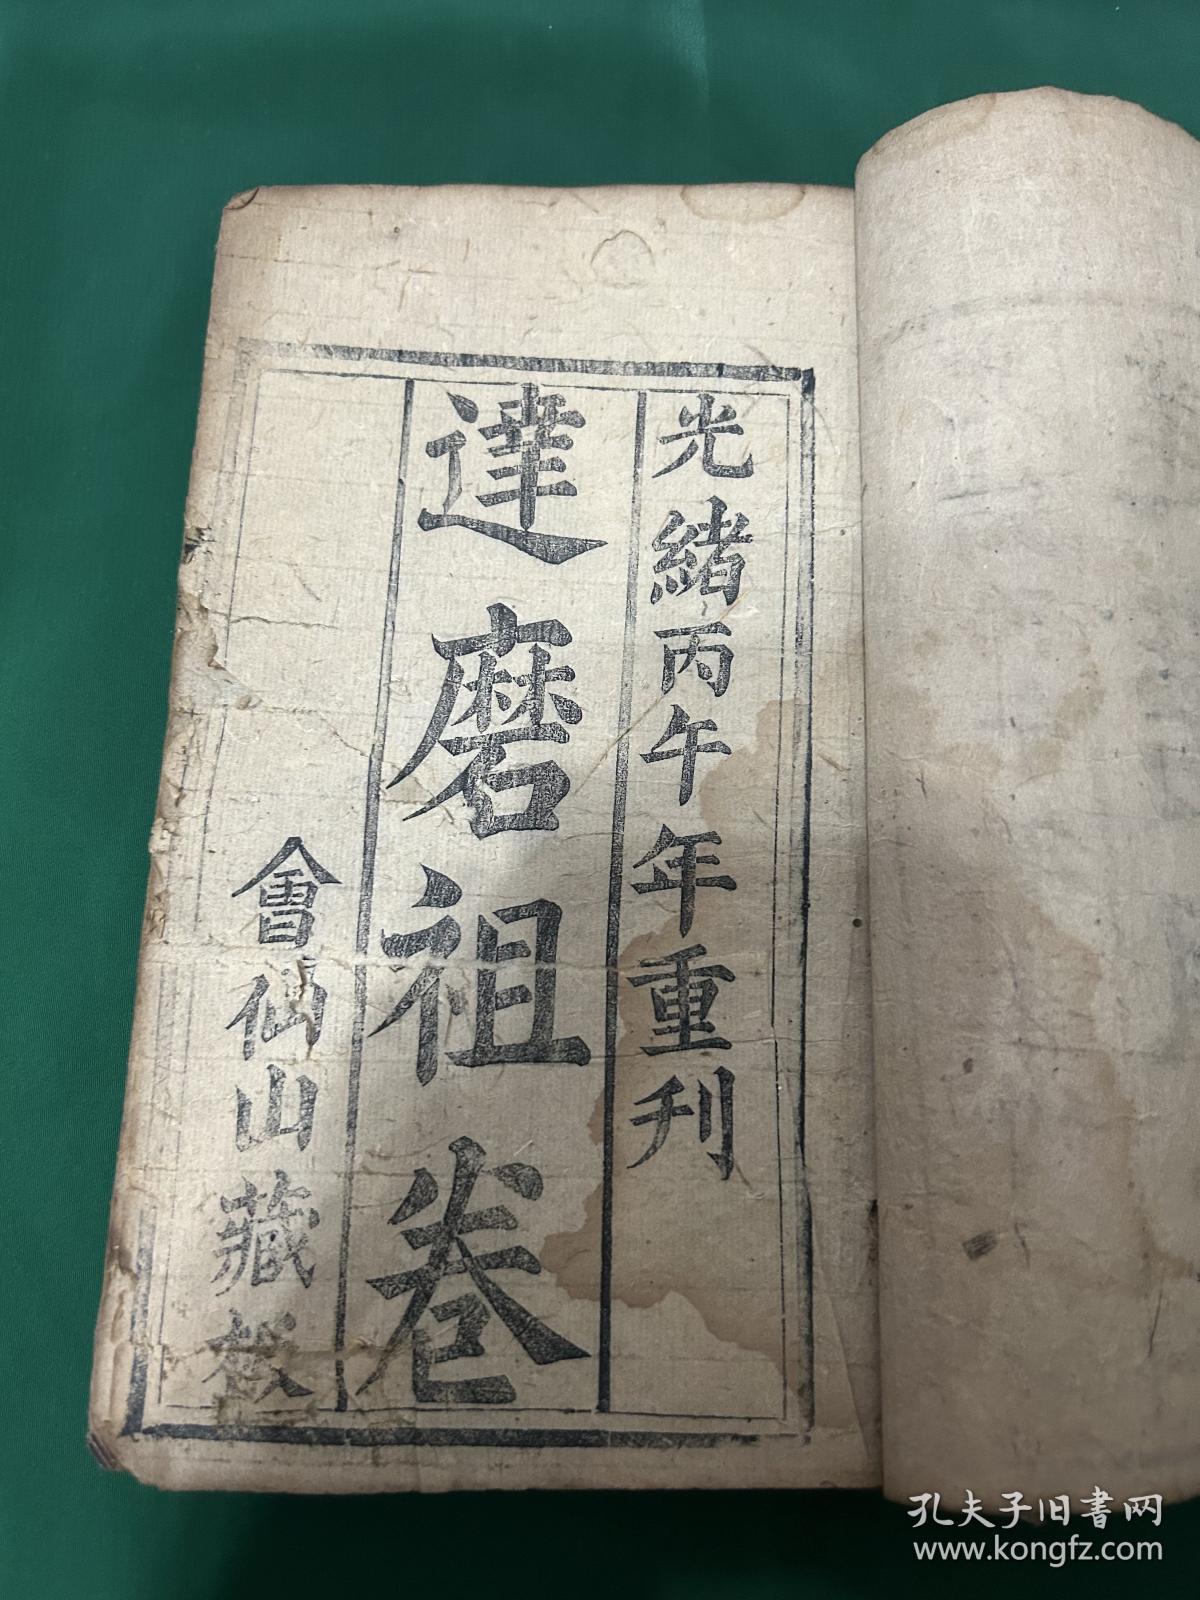 光緒丙午年重刊
達磨祖卷
會仙山藏板
孔夫子旧书网
www.kongfz.com